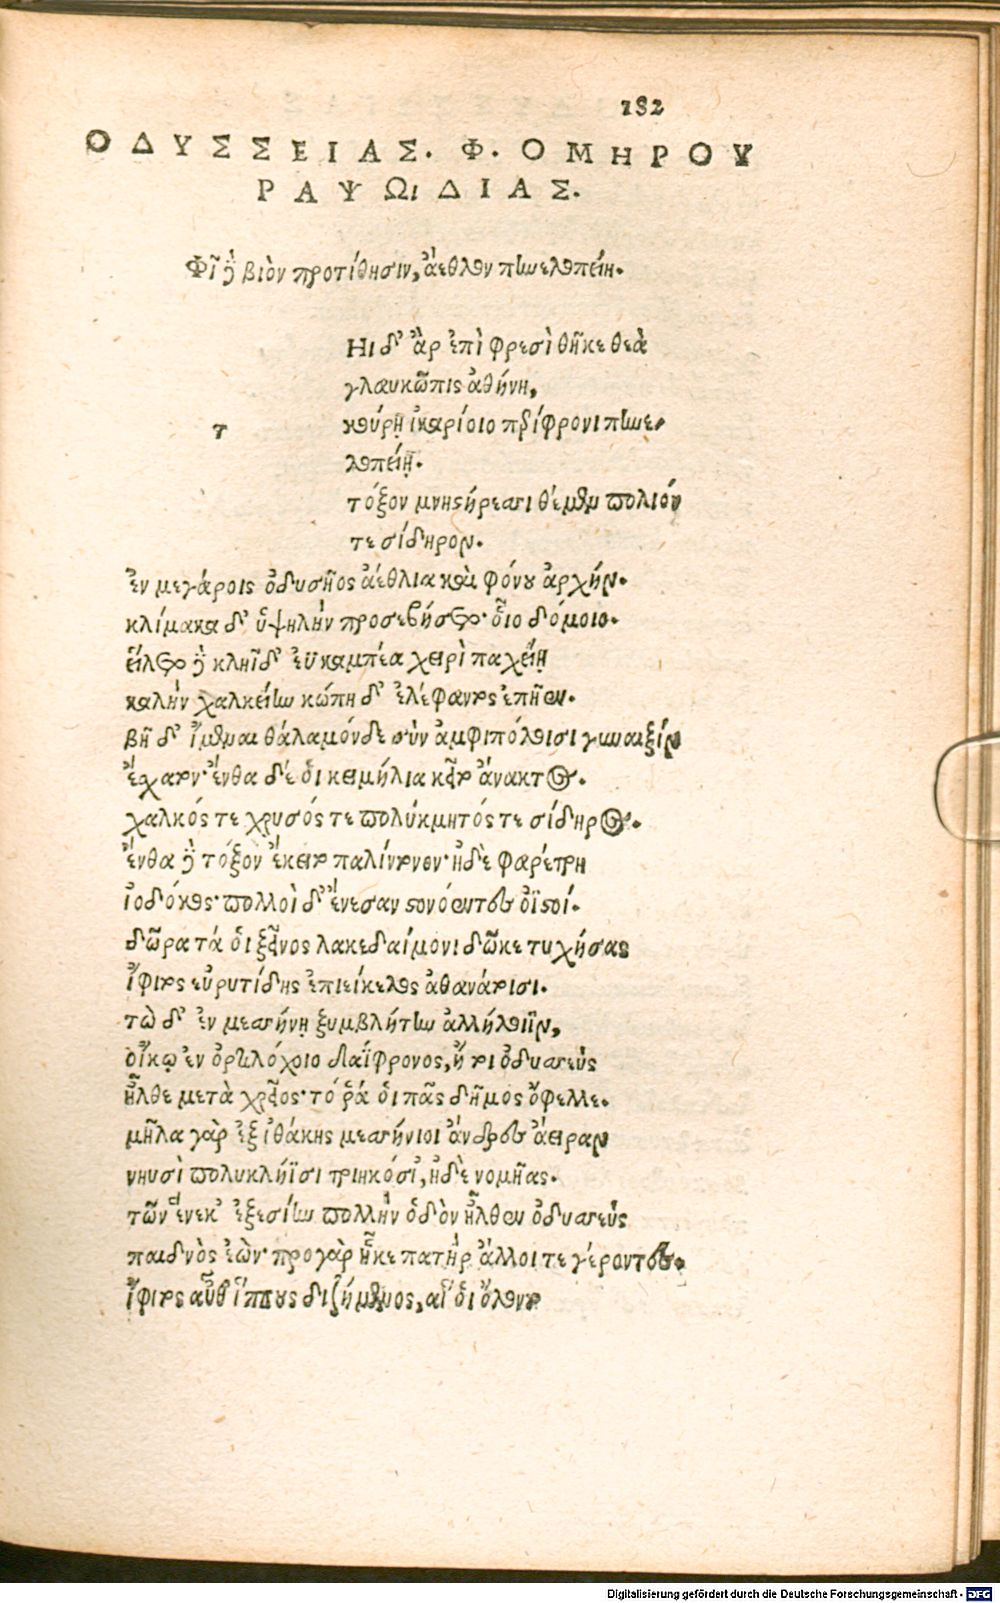 182
ΟΔΥΣΣΕΙΑΣ. Φ. ΟΜΗΡΟΥ
ΡΑΨΩιΔΙΑΣ.
Φῖ δὲ βιὸν προτίθησιν, ἄεθλον πηνελοπείη.
Ηι δ' ἂρ ἐπὶ φρεσὶ θῆκε θεὰ
γλαυκῶπις ἀθήνη,
τ
κούρῃ ἰκαρίοιο περίφρονι πηνε-
λοπείῃ.
τόξον μνηστήρεσσι θέμεν πολιόν
τε σίδηρον.
ἐν μεγάροις ὀδυσῆος ἀέθλια καὶ φόνου ἀρχήν.
κλίμακα δ' ὑψηλὴν προσεβήσετο οἷο δόμοιο.
εἵλετο δὲ κληῗδ' εὐκαμπέα χειρὶ παχείῃ
καλὴν χαλκείην κώπη δ' ἐλέφαντος ἐπῆεν.
βῆ δ' ἴμεναι θάλαμόνδε σὺν ἀμφιπόλοισι γυναιξίν
ἔσχατον· ἔνθα δέ οἱ κειμήλια κεῖτο ἄνακτος.
χαλκός τε χρυσός τε πολύκμητός τε σίδηρος.
ἔνθα δὲ τόξον ἔκειτο παλίντονον· ἠδὲ φαρέτρη
ἰοδόκος· πολλοὶ δ' ἔνεσαν στονόεντες ὀϊστοί.
δῶρα τά οἱ ξεῖνος λακεδαίμονι δῶκε τυχήσας
ἴφιτος εὐρυτίδης ἐπιείκελος ἀθανάτοισι.
τὼ δ' ἐν μεσσήνῃ ξυμβλήτην ἀλλήλοιϊν,
οἴκῳ ἐν ὀρτιλόχοιο δαΐφρονος, ἤτοι ὀδυσσεὺς
ἦλθε μετὰ χρεῖος· τό ῥά οἱ πᾶς δῆμος ὄφελλε.
μῆλα γὰρ ἐξ ἰθάκης μεσσήνιοι ἄνδρες ἄειραν
νηυσὶ πολυκλήϊσι τριηκόσι', ἠδὲ νομῆας.
τῶν ἕνεκ' ἐξεσίην πολλὴν ὁδὸν ἦλθεν ὀδυσσεὺς
παιδνὸς ἐὼν· προ γὰρ ἧκε πατὴρ ἄλλοι τε γέροντες.
ἴφιτος αὖθ' ἵππους διζήμενος, αἵ οἱ ὄλοντο
Digitalisierung gefördert durch die Deutsche Forschungsgemeinschaft - DFG